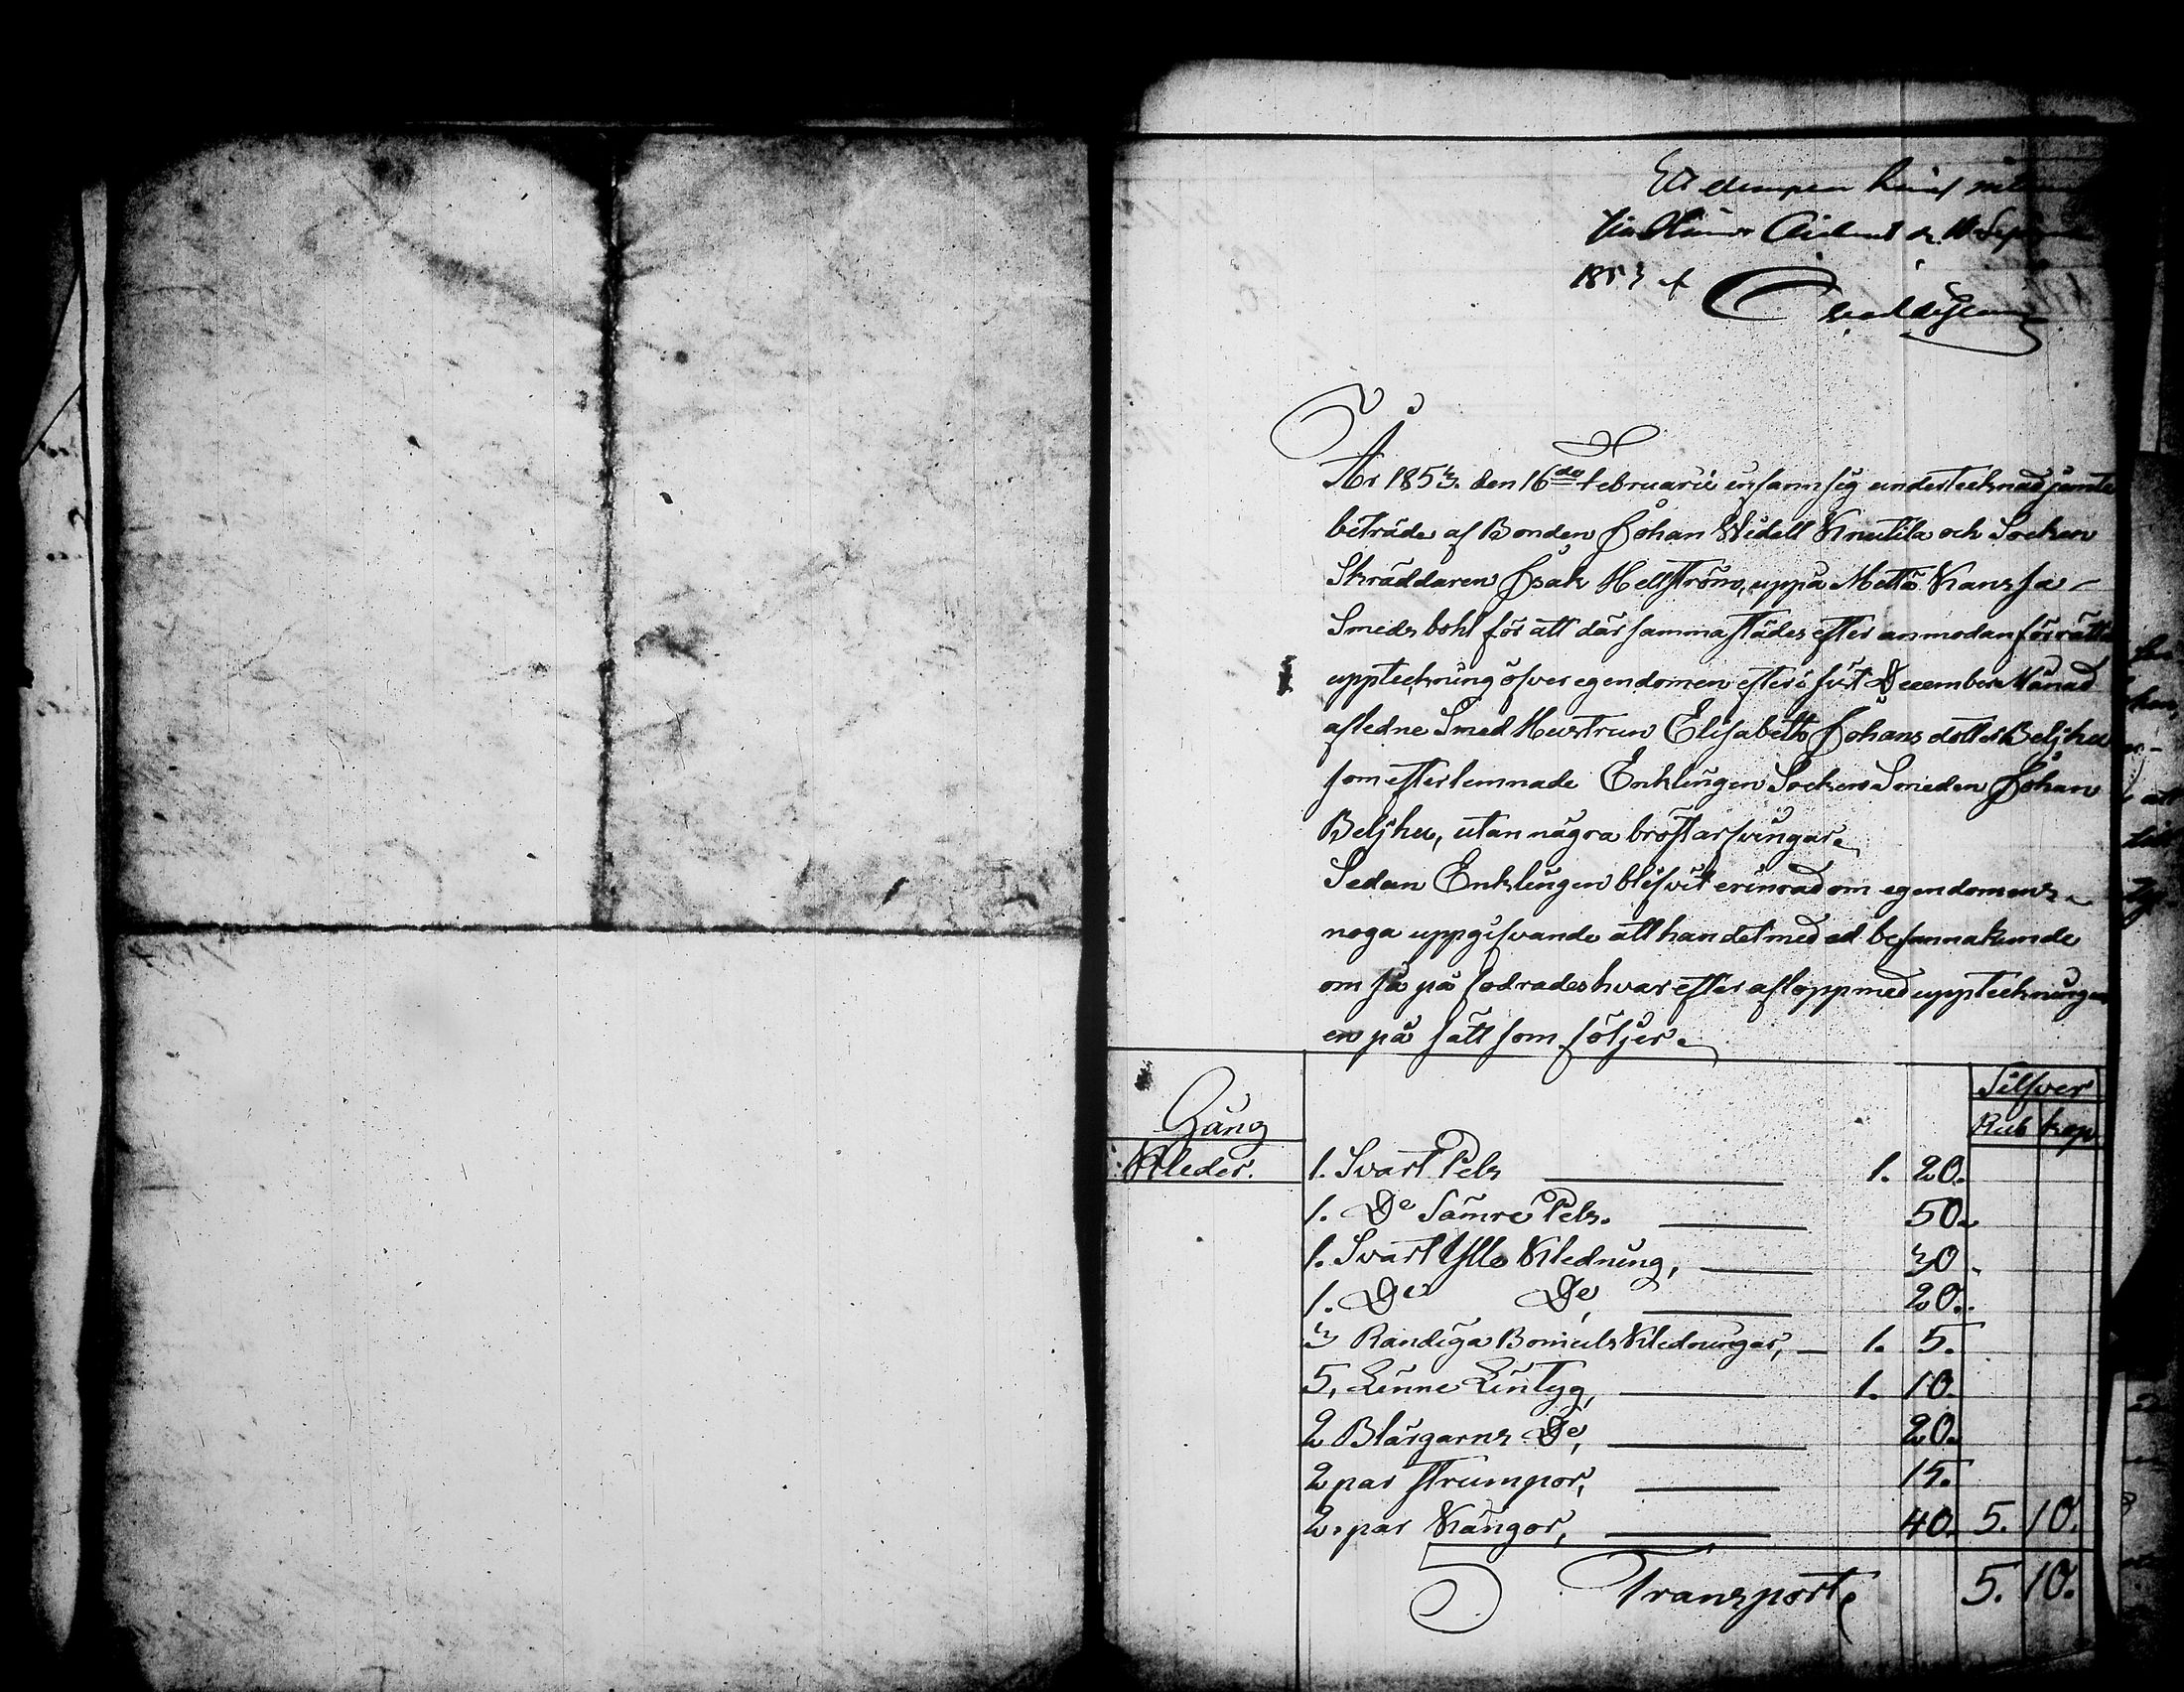 Ett exemplar häraf
1853 af
År 1853. den 16de Februarii infann sig undertecknad jämte
biträde af Bonden Johan Widell Knutila och Socken
Skräddaren Isak Hellström, uppå Mattö Kansa
Smedsbohl för att där sammastädes efter anmodan förrätta
uppteckning öfver egendomen efter i sist December Månad
afledne Smed Hustrun Elisabeth Johans dotter Beljhu
som efterlemnade Enklingen Socken Smeden Johan
Beljhu, utan några bröstarfvingar.
Sedan Enklingen blifvit erinrad om egendomens
noga uppgifvande att han det med ed besanna kunde
om så på fodrades hvar efter aflopp med uppteckningen
en på sätt som följer.
Silfver
Rub kop
Gång
Kleder.
1. Svart Pels 1. 20.
1. Do Sämre Pels. 50.
1. Svart Ylle Kledning, 30.
1. Do Do, 20.
3 Randiga Bomuls Kledningar, 1. 5.
5, Linne Lintyg, 1. 10.
2 Blårgarns Do, 20.
2 par strumpor, 15.
2. par Kängor, 40. 5. 10.
Transport 5. 10.